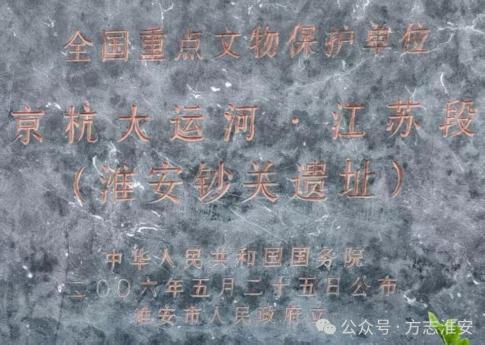 全国重点文物保护单位
京杭大运河·江苏段
（淮安钞关遗址）
中华人民共和国国务院
二〇〇六年五月二十五日公布
淮安市人民政府立
公众号·方志淮安